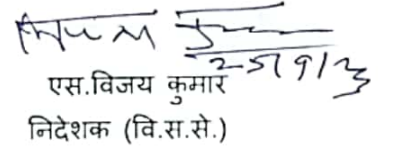 25/9/23
एस.विजय कुमार
निदेशक (वि.स.से.)